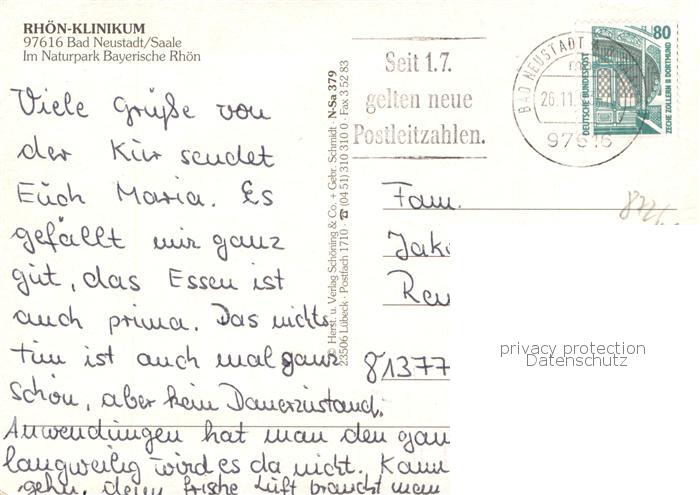 RHÖN-KLINIKUM
97616 Bad Neustadt/Saale
Im Naturpark Bayerische Rhön
Viele Grüße von
der Kur sendet
Euch Maria. Es
gefällt mir ganz
gut, das Essen ist
auch prima. Das nichts
tun ist auch mal ganz
schön, aber kein Dauerzustand.
Anwendungen hat man den gan
langweilig wird es da nicht. Kann
gehn, denn frische Luft braucht man
© Herst. u. Verlag Schöning & Co. + Gebr. Schmidt · N-Sa 379
23506 Lübeck · Postfach 1710 · ☎ (04 51) 310 310 0 · Fax 3 52 83
Seit 1.7.
gelten neue
Postleitzahlen.
BAD NEUSTADT
26.11.
97616
80
DEUTSCHE BUNDESPOST
ZECHE ZOLLERN II DORTMUND
Fam.
Jak
81377
privacy protection
Datenschutz